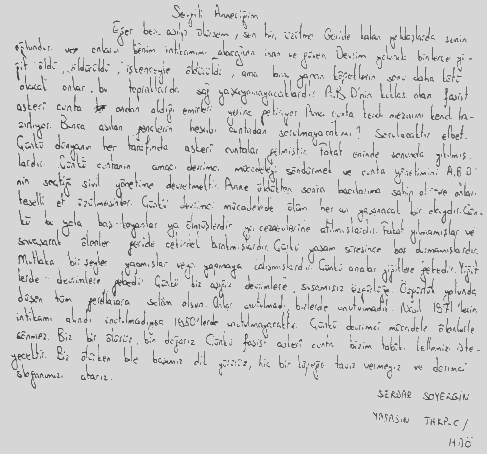 Sevgili Anneciğim
Eğer ben asılıp ölürsem, sen hiç üzülme Geride kalan yoldaşlarda senin
oğlundur. ve onların benim intikamımı alacağına inan ve güven Devrim yolunda binlerce yi-
ğit öldü, öldürüldü, işkenceyle öldürüldü, ama bize yapan köpeklerin sonu daha kötü
olacak onlar, bu topraklarda sağ yaşayamayacaklardır A.B.D'nin kuklası olan faşist
askeri cunta ondan aldığı emirleri yerine getiriyor Ama cunta kendi mezarını kendi ha-
zırlıyor. Bunca asılan gençlerin hesabı cuntadan sorulmayacakmı? Sorulacaktır elbet.
Çünkü dünyanın her tarafında askeri cuntalar gelmiştir fakat eninde sonunda yıkılmış-
lardır. Çünkü cuntanın amacı devrimci mücadeleyi söndürmek ve cunta yönetimini A.B.D'
nin seçtiği sivil yönetime devretmektir. Anne öldükten sonra bacılarıma sahip ol ve onları
teselli et üzülmesinler. Çünkü devrimci mücadelede ölüm her an yaşanacak bir olaydır. Çün-
kü bu yola baş koyanlar ya ölmüşlerdir ya cezaevlerine atılmışlardır. Fakat yılmamışlar ve
savaşarak ölenler geride bırakmışlardır. Çünkü yaşam süresince boş durmamışlardır.
Mutlaka bir şeyler yapmışlar veya yapmaya çalışmışlardır Çünkü analar yiğitlere gebedir. Yiğit
lerde devrimlere gebedir Çünkü biz açığız devrimlere, susamışız özgürlüğe. Özgürlük yolunda
düşen tüm yoldaşlara selam olsun. Onlar unutulmadı bizlerde unutulmadık. Nasıl 1971'lerin
intikamı alındı unutulmadıysa 1980'lerde unutulmayacaktır. Çünkü devrimci mücadele ölümlerle
sönmez. Biz bir ölürüz, bin doğarız Çünkü faşist askeri cunta bizim
yecektir. Biz ölürken bile başımız dik yürürüz, hiç bir köpeğe taviz vermeyiz ve devrimci
sloganımızı atarız.
SERDAR SOYERGİN
YAŞASIN THKP-C/
HDÖ